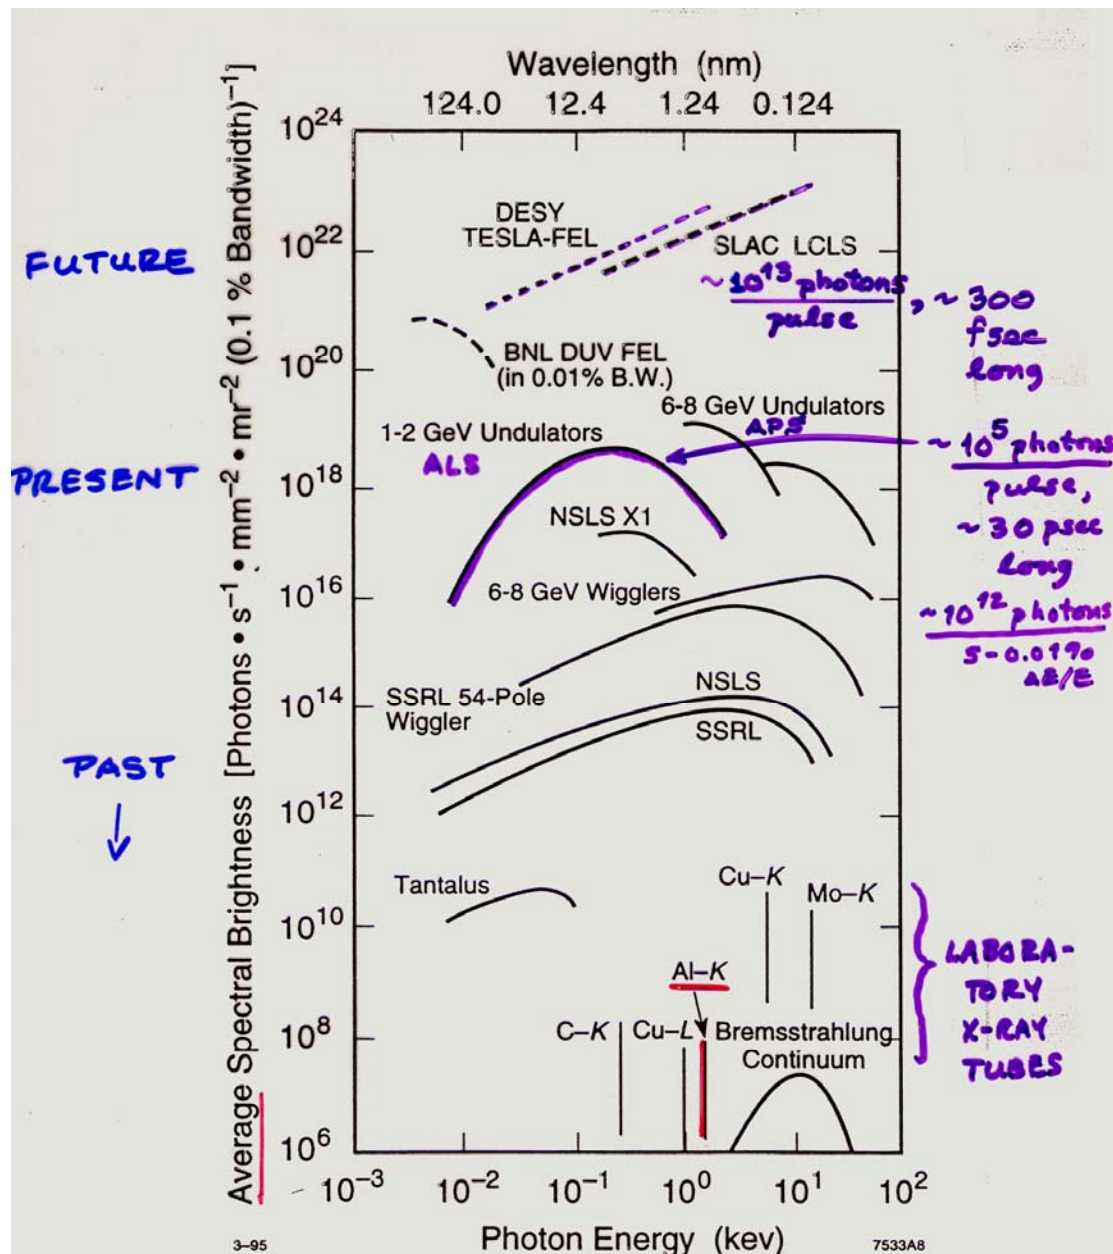 Wavelength (nm)
124.0 12.4 1.24 0.124
Average Spectral Brightness [Photons • s⁻¹ • mm⁻² • mr⁻² (0.1 % Bandwidth)⁻¹]
10²⁴
10²²
10²⁰
10¹⁸
10¹⁶
10¹⁴
10¹²
10¹⁰
10⁸
10⁶
FUTURE
PRESENT
PAST
DESY
TESLA-FEL
SLAC LCLS
~10¹³ photons
pulse
, ~ 300
fsec
long
BNL DUV FEL
(in 0.01% B.W.)
6-8 GeV Undulators
APS
1-2 GeV Undulators
ALS
~ 10⁵ photons
pulse,
~ 30 psec
long
NSLS X1
6-8 GeV Wigglers
~10¹² photons
s-0.01%
ΔE/E
SSRL 54-Pole
Wiggler
NSLS
SSRL
Tantalus
Cu–K
Mo–K
Al–K
C–K
Cu–L
Bremsstrahlung
Continuum
LABORA-
TORY
X-RAY
TUBES
10⁻³ 10⁻² 10⁻¹ 10⁰ 10¹ 10²
Photon Energy (kev)
3–95
7533A8